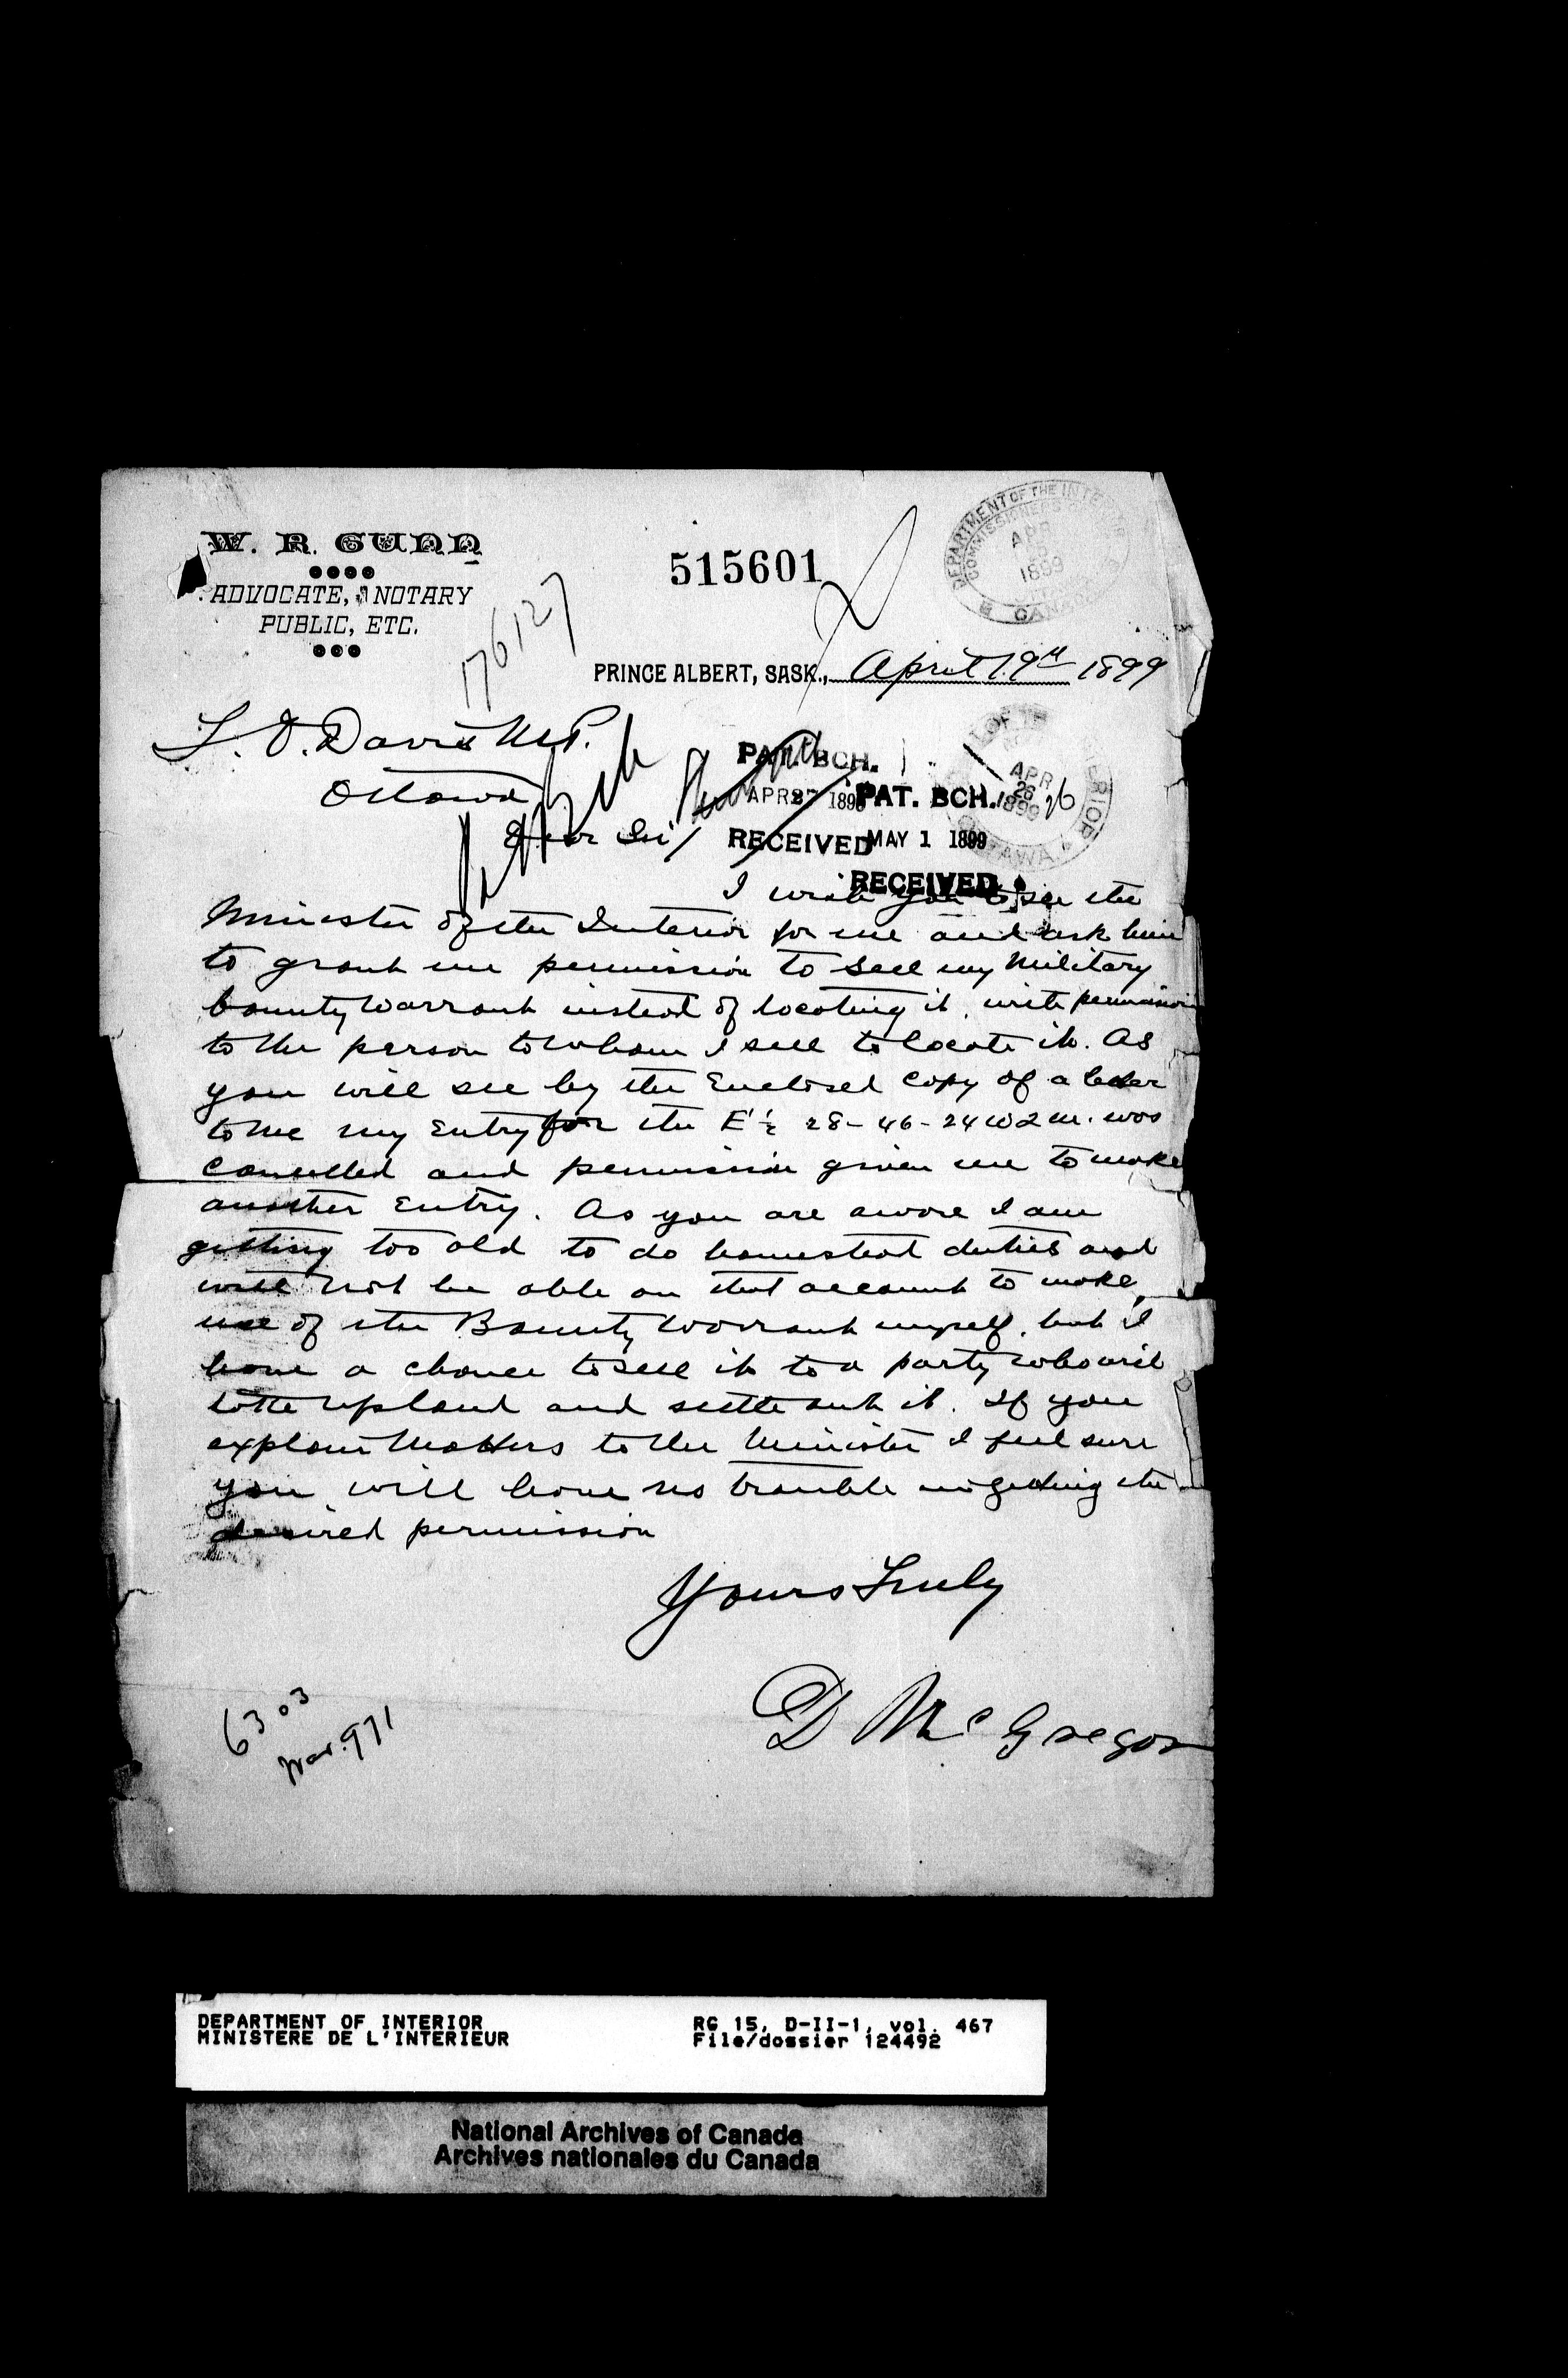 W. R. GUNN
ADVOCATE, NOTARY
PUBLIC, ETC.
515601
176127
DEPARTMENT OF THE INTERIOR
COMMISSIONER'S
APR
1899
CANADA
PRINCE ALBERT, SASK., April 19th 1899
T. O. Davis M.P.
Ottawa
PAT. BCH.
APR 27 1899
RECEIVED
PAT. BCH.
MAY 1 1899
RECEIVED
APR
26
1899
OTTAWA
Dear Sir/
I wish you to see the
Minister of the Interior for me and ask him
to grant me permission to sell my Military
bounty Warrant instead of locating it, with permission
to the person to whom I sell to locate it. As
you will see by the Enclosed copy of a letter
to me my Entry for the E ½ 28-46-24 W 2 m. was
Cancelled and permission given me to make
another Entry. As you are aware I am
getting too old to do homestead duties and
will not be able on that account to make
use of the Bounty Warrant myself, but I
have a chance to sell it to a party who will
take up land and settle with it. If you
explain Matters to the Minister I feel sure
you will have no trouble in getting the
desired permission
Yours Truly
D McGregor
6303
War. 971
DEPARTMENT OF INTERIOR
MINISTERE DE L'INTERIEUR
RG 15, D-II-1, vol. 467
File/dossier 124492
National Archives of Canada
Archives nationales du Canada